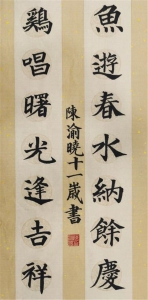 魚遊春水納餘慶
鷄唱曙光逢吉祥
陳渝曉十一歲書